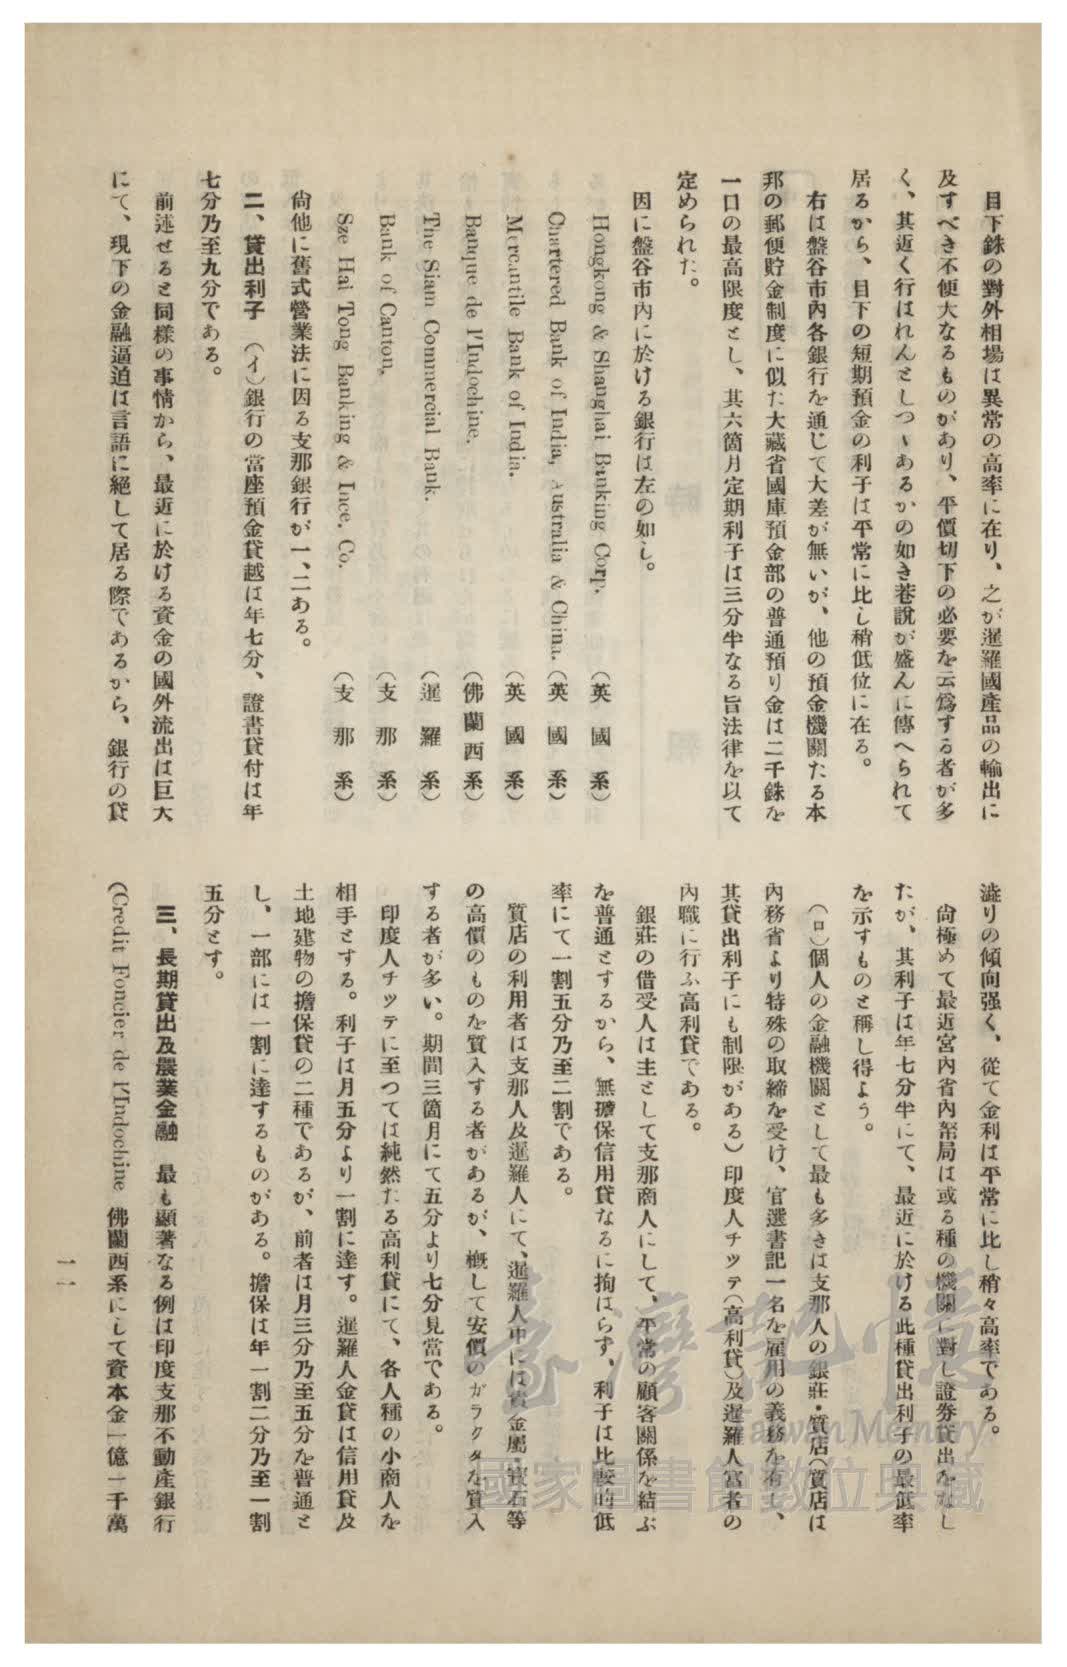 目下銖の對外相場は異常の高率に在り、之が暹羅國產品の輸出に
及すべき不便大なるものがあり、平價切下の必要を云爲する者が多
く、其近く行はれんとしつゝあるかの如き巷說が盛んに傳へられて
居るから、目下の短期預金の利子は平常に比し稍低位に在る。
右は盤谷市內各銀行を通じて大差が無いが、他の預金機關たる本
邦の郵便貯金制度に似た大藏省國庫預金部の普通預り金は二千銖を
一口の最高限度とし、其六箇月定期利子は三分半なる旨法律を以て
定められた。
因に盤谷市內に於ける銀行は左の如し。
Hongkong & Shanghai Banking Corp.（英國系）
Chartered Bank of India, Australia & China.（英國系）
Mercantile Bank of India.（英國系）
Banque de l'Indochine.（佛蘭西系）
The Siam Commercial Bank.（暹羅系）
Bank of Canton,（支那系）
Sze Hai Tong Banking & Ince. Co.（支那系）
尙他に舊式營業法に因る支那銀行が一、二ある。
二、貸出利子　（イ）銀行の當座預金貸越は年七分、證書貸付は年
七分乃至九分である。
前述せると同樣の事情から、最近に於ける資金の國外流出は巨大
にて、現下の金融逼迫は言語に絕して居る際であるから、銀行の貸
澁りの傾向强く、從て金利は平常に比し稍々高率である。
尙極めて最近宮內省內帑局は或る種の機關に對し證券貸出をなし
たが、其利子は年七分半にて、最近に於ける此種貸出利子の最低率
を示すものと稱し得よう。
（ロ）個人の金融機關として最も多きは支那人の銀莊・質店（質店は
內務省より特殊の取締を受け、官選書記一名を雇用の義務を有し、
其貸出利子にも制限がある）印度人チッテ（高利貸）及暹羅人富者の
內職に行ふ高利貸である。
銀莊の借受人は主として支那商人にして、平常の顧客關係を結ぶ
を普通とするから、無擔保信用貸なるに拘はらず、利子は比較的低
率にて一割五分乃至二割である。
質店の利用者は支那人及暹羅人にて、暹羅人中には貴金屬・寶石等
の高價のものを質入する者があるが、槪して安價のガラクタを質入
する者が多い。期間三箇月にて五分より七分見當である。
印度人チッテに至つては純然たる高利貸にて、各人種の小商人を
相手とする。利子は月五分より一割に達す。暹羅人金貸は信用貸及
土地建物の擔保貸の二種であるが、前者は月三分乃至五分を普通と
し、一部には一割に達するものがある。擔保は年一割二分乃至一割
五分とす。
三、長期貸出及農業金融　最も顯著なる例は印度支那不動產銀行
（Crédit Foncier de l'Indochine 佛蘭西系にして資本金一億一千萬
一一
臺灣記憶
Taiwan Memory
國家圖書館數位典藏